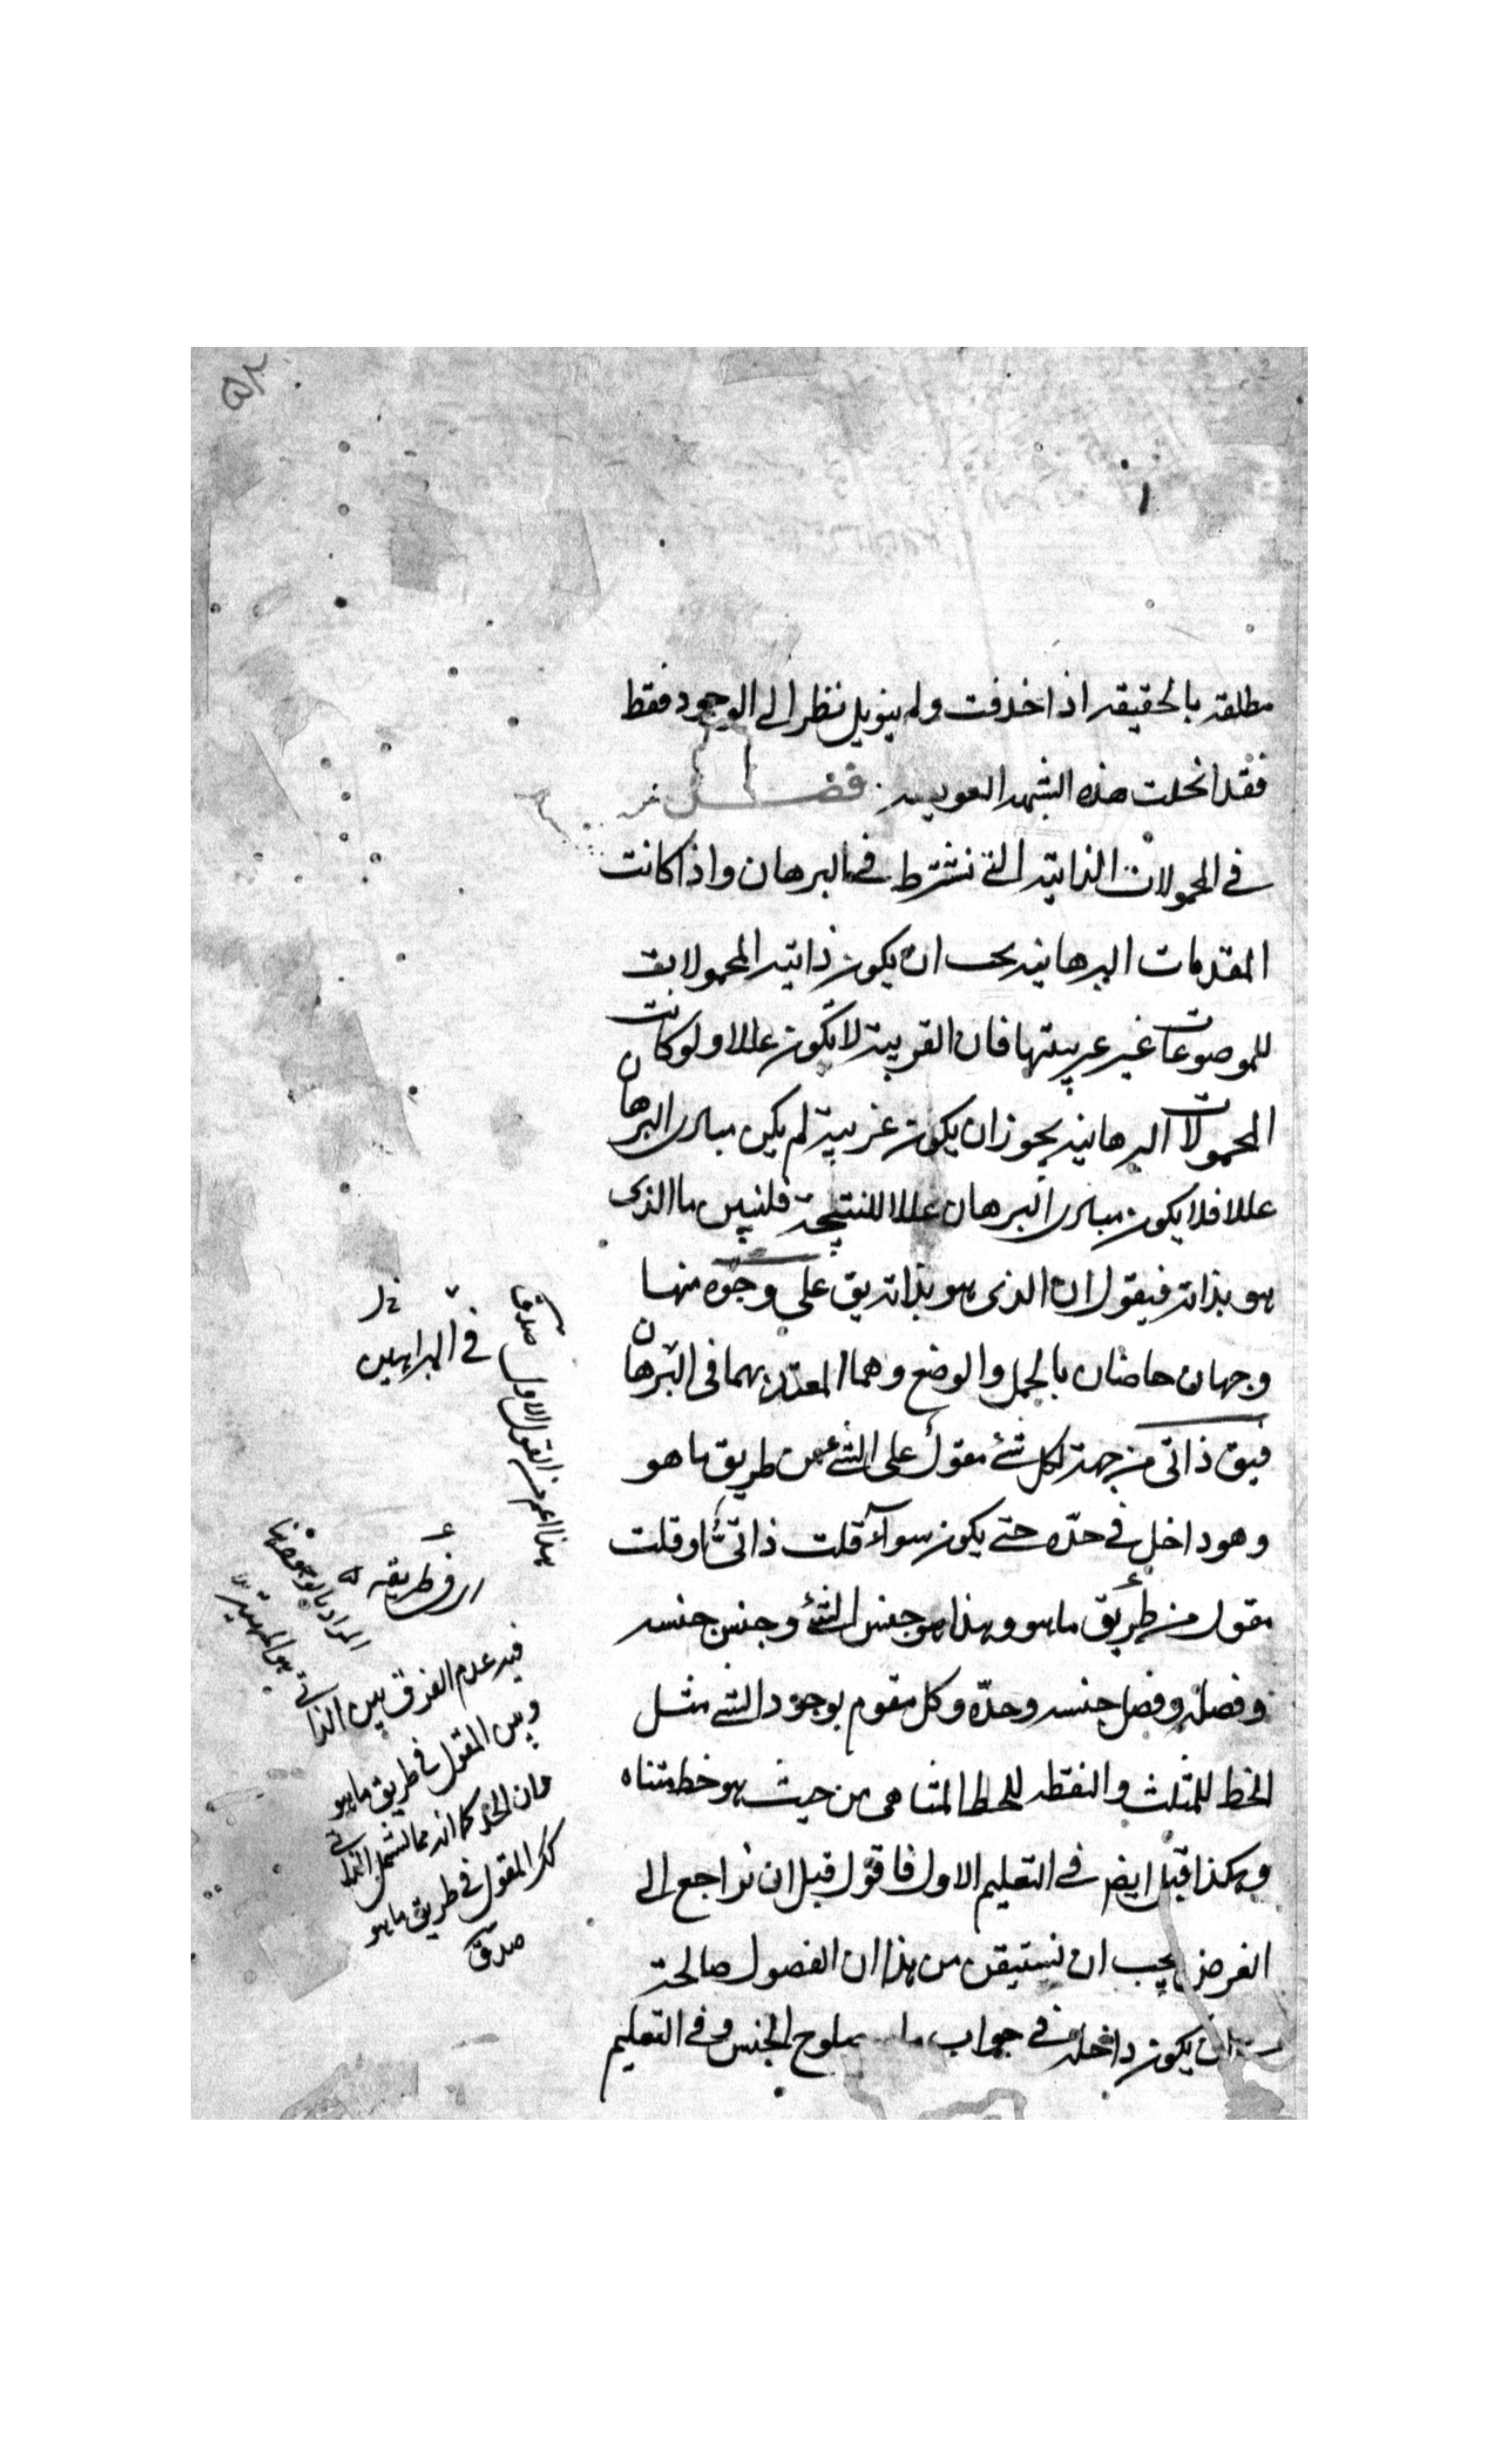 ٥٢
١
مطلقه بالحقيقه اذ اخذفت ولم ينويل نظر الى الوجود فقط
فقد انحلت هذه الشبهه العويصه فصـــل
فى المحمولات الذاتيه التى نشترط فى البرهان واذا كانت
المقدمات البرهانيه يجب ان يكون ذاتيه المحمولا بق
للموضوعات غير غريبتها فان الغريبة لا تكون عللا ولو كانت
المحمولات البرهانيه يجوز ان يكون غريبة لم يكن مبادى البرهان
عللا فلا يكون مبادى البرهان عللا للنتيجة فلنبين ما الذى
هو بذاته فيقول ان الذى هو بذاته يق على وجوه منها
وجهان خاصان بالحمل والوضع وهما المعتدبهما فى البرهان
فيق ذاتى من جهة لكل شئ مقول على الشئ من طريق ما هو
وهو داخل فى حدّه حتى يكون سوآء قلت ذاتىّ او قلت
مقول من طريق ما هو وهذا هو جنس الشئ وجنس جنسه
وفصله وفصل جنسه وحدّه وكل مقوم بوجود الشئ مثـل
الخط للمثلث والنقطه للخط المتناهى من حيث هو خط متناه
وهكذا قيل ايض فى التعليم الاول فاقول قبل ان نراجع الى
الغرض يجب ان نستيقن من هذا ان الفصول صالحة
ان يكون داخلة فى جواب ما صلوح الجنس وفى التعليم
هذا اعم من القول الاول صدقا
فى البراهين
اى فى طريقه
المراد بالوجود
هو المهية
فيه عدم الفرق بين الذاتى
وبين المقول فى طريق ما هو
وان الحد كما انه مما يشمل الذاتى
كك المقول فى طريق ما هو
صدق